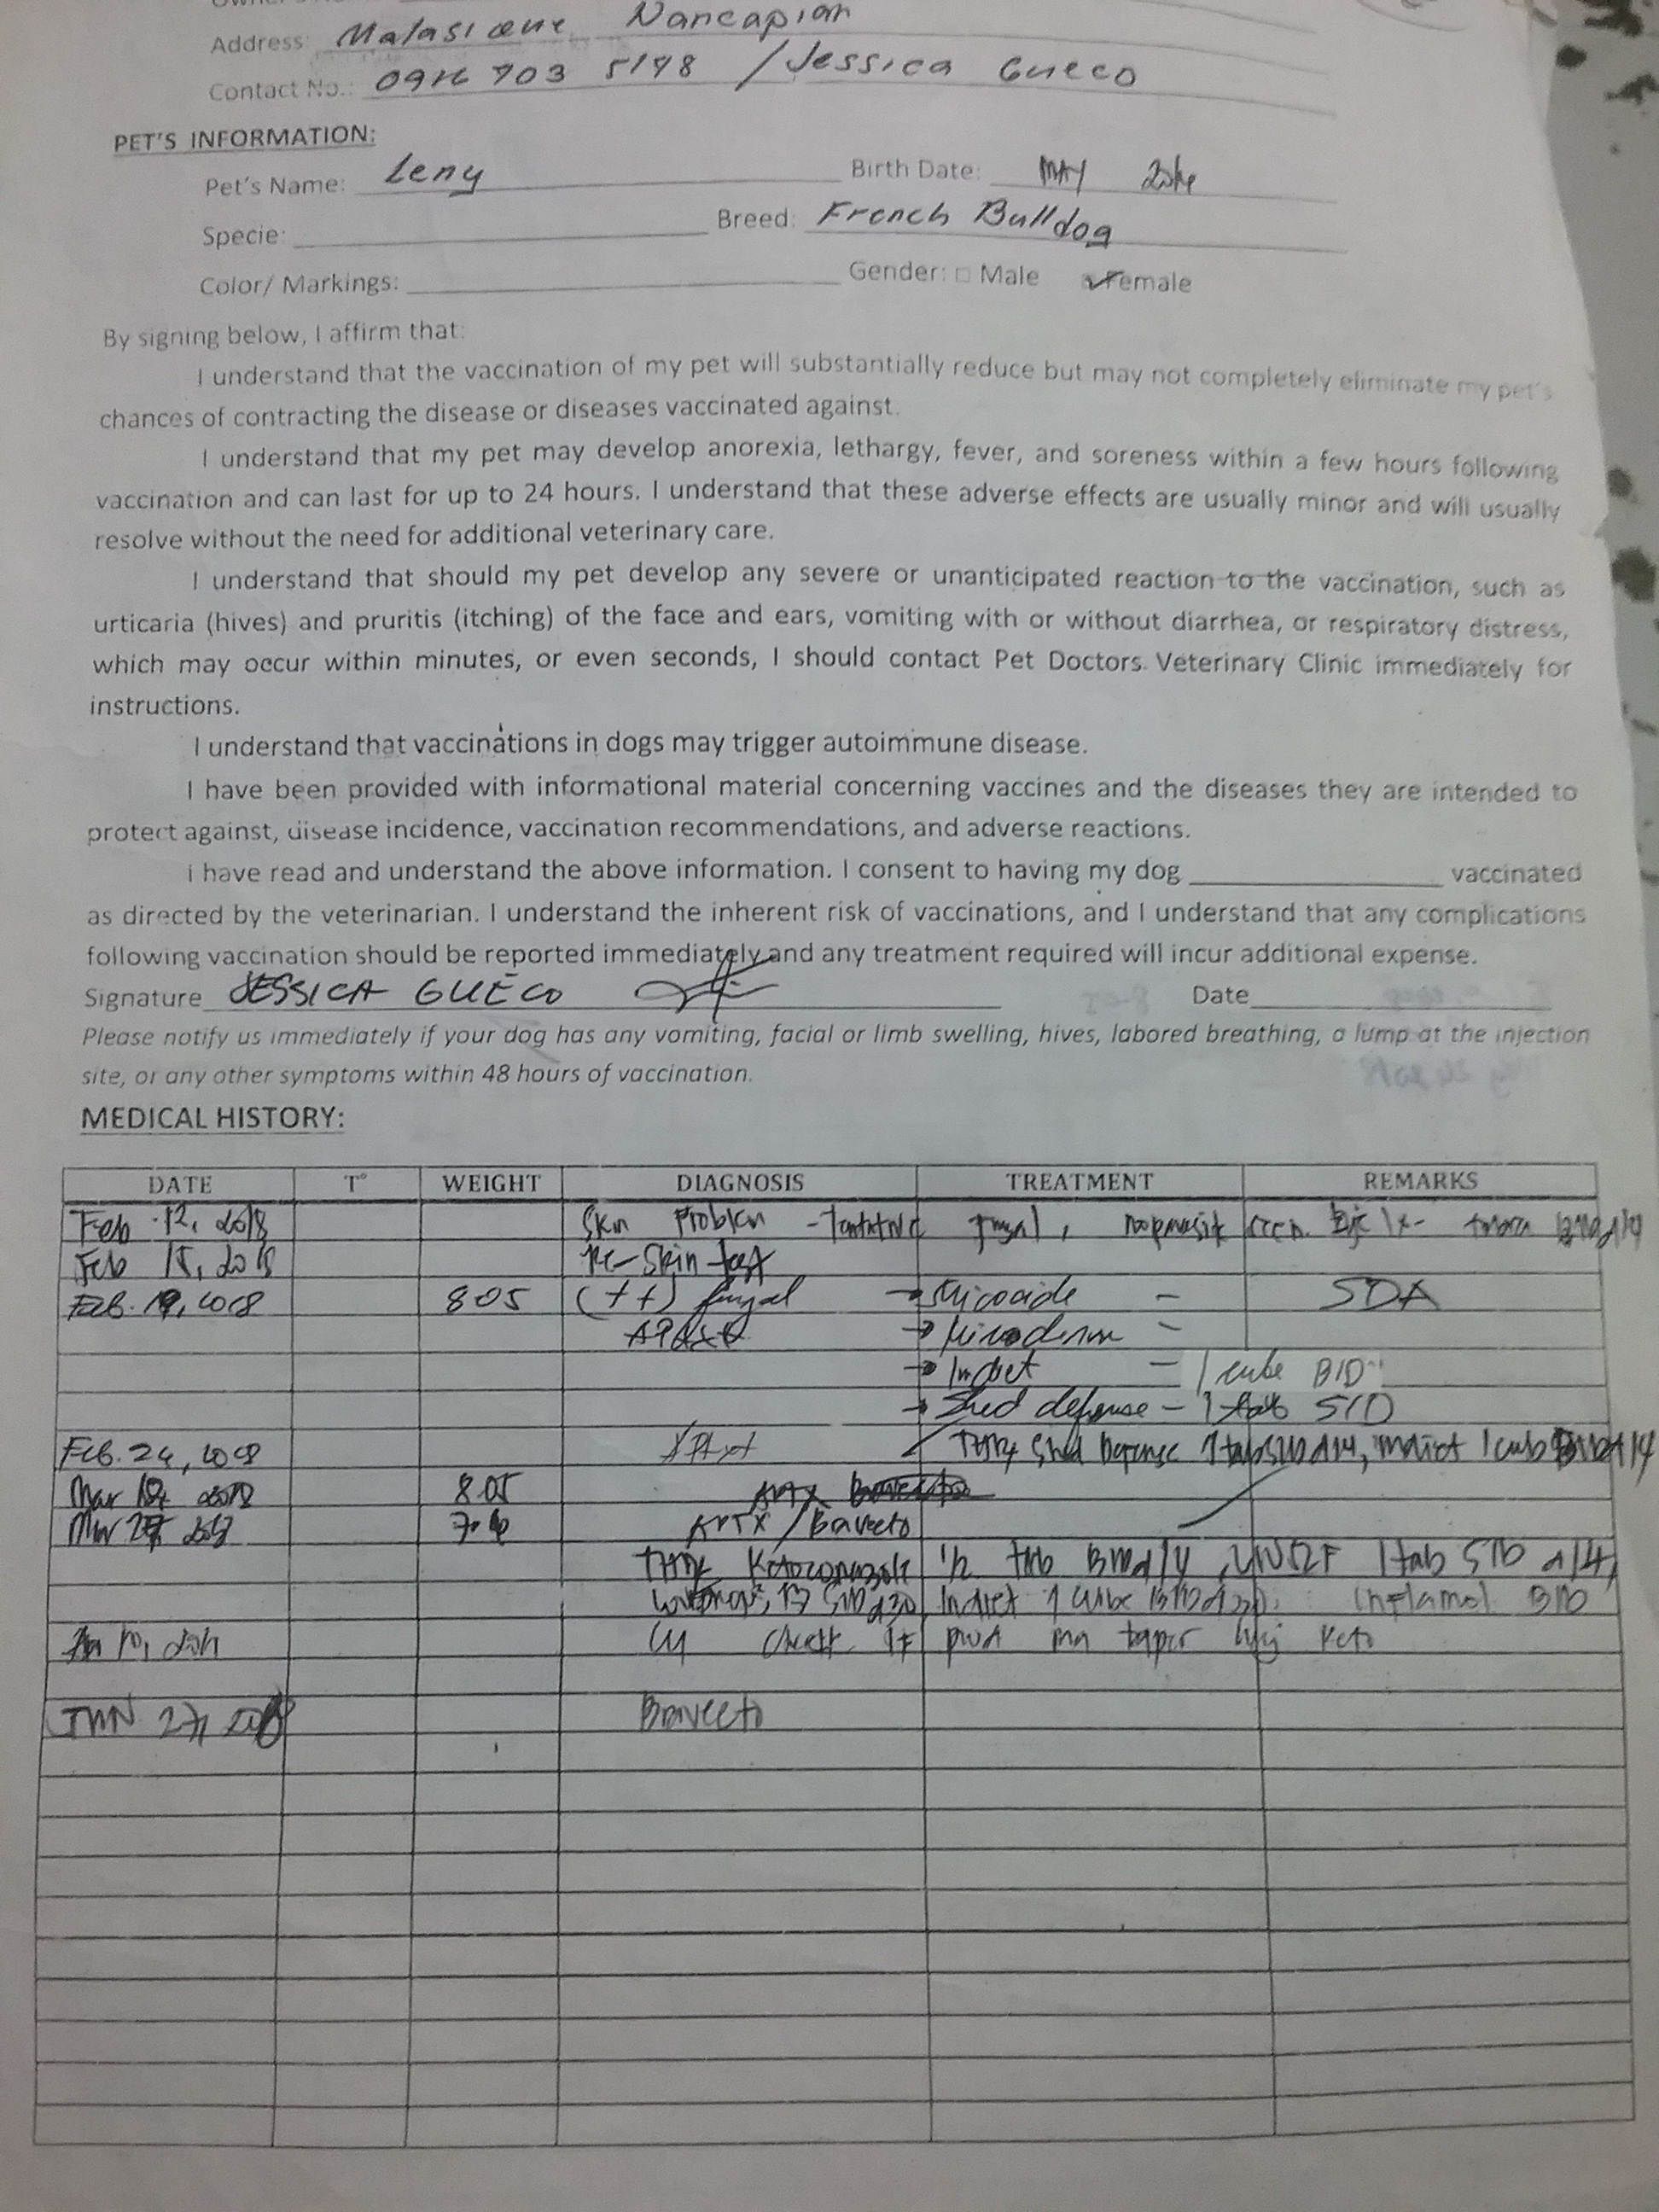 Address: Malasique Nancapian
Contact No.: 5198 / Jessica Gueco
PET'S INFORMATION:
Pet's Name: Leny Birth Date: MAY
Specie: Breed: French Bulldog
Color/ Markings: Gender: □ Male ✓ Female
By signing below, I affirm that:
I understand that the vaccination of my pet will substantially reduce but may not completely eliminate my pet's
chances of contracting the disease or diseases vaccinated against.
I understand that my pet may develop anorexia, lethargy, fever, and soreness within a few hours following
vaccination and can last for up to 24 hours. I understand that these adverse effects are usually minor and will usually
resolve without the need for additional veterinary care.
I understand that should my pet develop any severe or unanticipated reaction to the vaccination, such as
urticaria (hives) and pruritis (itching) of the face and ears, vomiting with or without diarrhea, or respiratory distress,
which may occur within minutes, or even seconds, I should contact Pet Doctors Veterinary Clinic immediately for
instructions.
I understand that vaccinations in dogs may trigger autoimmune disease.
I have been provided with informational material concerning vaccines and the diseases they are intended to
protect against, disease incidence, vaccination recommendations, and adverse reactions.
i have read and understand the above information. I consent to having my dog ____________ vaccinated
as directed by the veterinarian. I understand the inherent risk of vaccinations, and I understand that any complications
following vaccination should be reported immediately and any treatment required will incur additional expense.
Signature JESSICA GUECO Date
Please notify us immediately if your dog has any vomiting, facial or limb swelling, hives, labored breathing, a lump at the injection
site, or any other symptoms within 48 hours of vaccination.
MEDICAL HISTORY:
DATE T° WEIGHT DIAGNOSIS TREATMENT REMARKS
Feb 12, 2018 Skn Problem
Feb 15, 2018 Re-Skin test
Feb. 19, 2018 8.05 (++) fungal → Micocide - SDA
→ Micoderm -
→ Indiet - 1 cube BID
→ Shed defense - 1 tab SID
Feb. 24, 2018 Shed Defense 1 tab SID d14, indiet 1 cube
Mar 2018 8.05
Mar 27, 2018 / Bravecto
THMx Ketoconazole 1/2 tab 1 tab SID d14,
Indiet 1 cube Inflamol BID
check if pwd ma taper keto
JUN 27, 2018 Bravecto